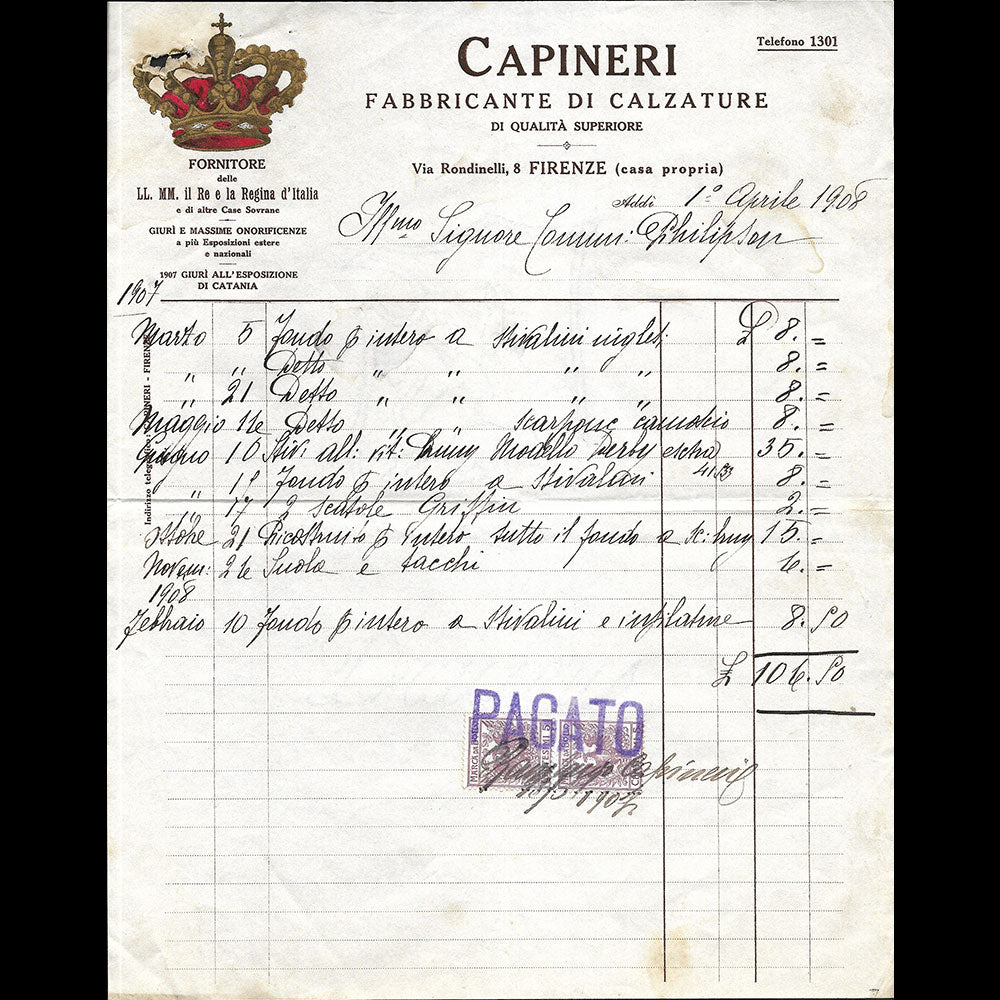 CAPINERI
Telefono 1301
FABBRICANTE DI CALZATURE
DI QUALITÀ SUPERIORE
Via Rondinelli, 8 FIRENZE (casa propria)
FORNITORE
delle
LL. MM. il Re e la Regina d'Italia
e di altre Case Sovrane
GIURÌ E MASSIME ONORIFICENZE
a più Esposizioni estere
e nazionali
1907 GIURÌ ALL'ESPOSIZIONE
DI CATANIA
Addì 1º Aprile 1908
Illmo Signore Comm: Philipson
1907
Marzo 5 Fondo intero a Stivalini inglet: £ 8. =
" " Detto " " " " 8. =
" 21 Detto " " " " 8. =
Maggio 16 Detto " scarpone camoscio 8. =
Giugno 10 Stiv: all: vit: Modello Derby 35. =
" 18 Fondo intero a Stivalini 8. =
" 17 2 Scatole Griffin 2. =
21 intero tutto il fondo a 15. =
Novem: 26 Suola e tacchi 6. =
1908
Febbraio 10 Fondo intero a Stivalini e infilature 8. 50
£ 106. 50
PAGATO
MARCA DA BOLLO
Capineri
Indirizzo telegrafico: CAPINERI - FIRENZE